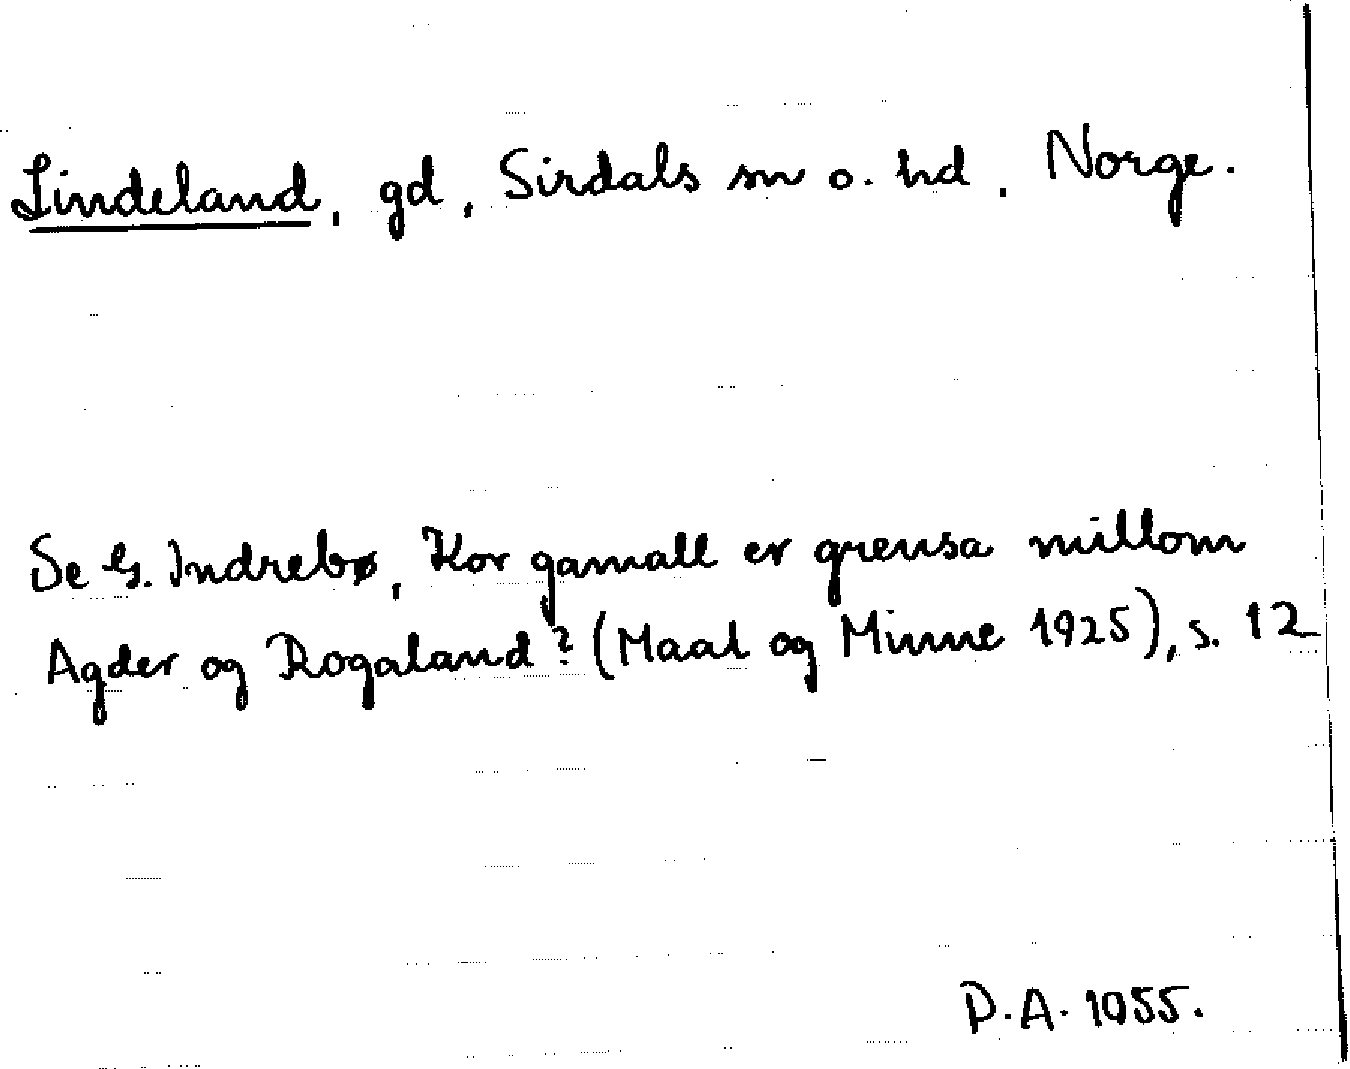 Lindeland, gd, Sirdals sn o. hd, Norge.
Se G. Indrebø, Kor gamall er grensa millom
Agder og Rogaland? (Maal og Minne 1925), s. 12
D.A. 1055.